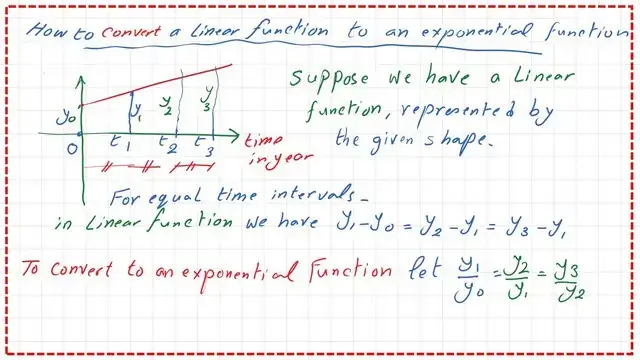 How to convert a Linear function to an exponential function
y0 y1 y2 y3
0 t1 t2 t3 time in year
Suppose we have a Linear
function, represented by
the given shape.
For equal time intervals-
in Linear function we have y1-y0 = y2-y1 = y3-y1
To convert to an exponential Function let y1/y0 = y2/y1 = y3/y2